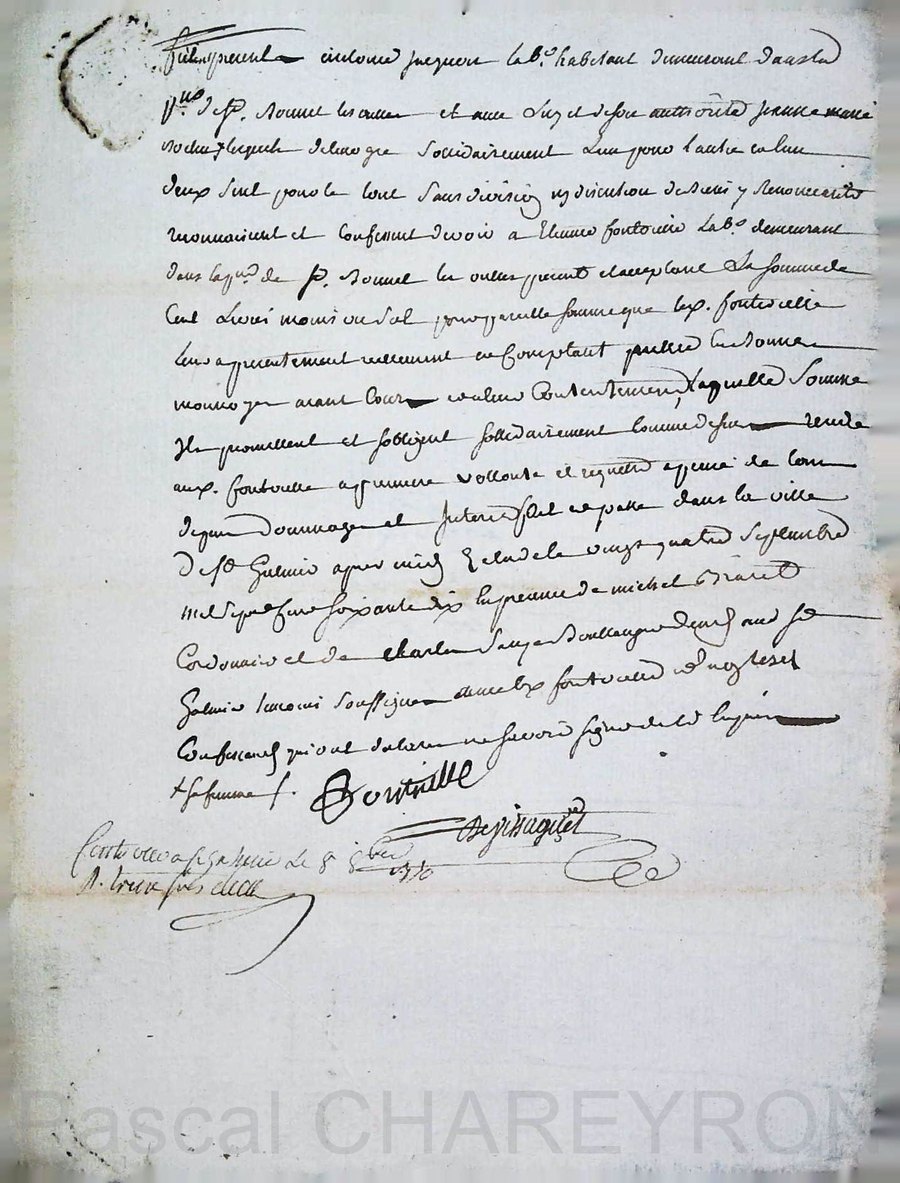 Fut present antoine jacquon lab.r habitant demeurant dans la
p.sse de S.t Bonnet les oulles et avec luy et de son authorité jeanne marie
lesquels de leur gre sollidairement l'un pour l'autre et l'un
deux seul pour le tout sans division ny discution de biens y renonceants
reconnoissent et confessent devoir a Etienne fontvielle lab.r demeurant
dans la p.sse de S.t Bonnet les oulles present et acceptant La somme de
Cent Livres moins un sol pour pareille somme que led. fontvielle
leur a presentement reellement en comptant prestée en bonne
monnoye aiant cours et a leur contentement, laquelle somme
Ils promettent et s'obligent sollidairement comme dessus rendre
aud. fontvielle a premiere vollonté et requette a peine de tous
depens dommages et Interets fait et passé dans la ville
De S.t Galmier apres midy Le vingt quatre septembre
mil sept cent soixante dix En presence de michel
Cordonnier et de Charles Boullanger dud. S.t
Galmier temoins soussignes avec led. fontvielle et non lesd.
Confessants qui ont declaré ne savoir signer de ce Enquis
+ sa femme /.
Fontvielle
Controllé a S.t Galmier Le 8 8bre 1770
R. treize sols